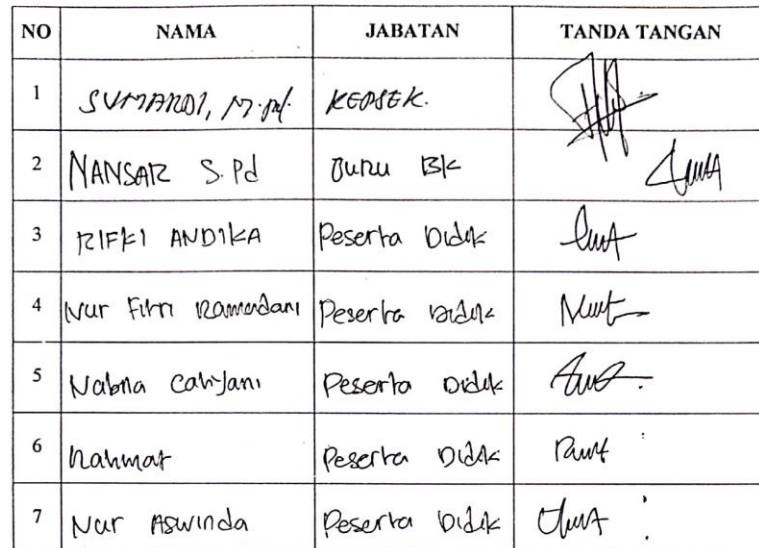 NO NAMA JABATAN TANDA TANGAN
1 SUMARDI, M.Pd. KEPSEK.
2 NANSAR S.Pd GURU BK
3 RIFKI ANDIKA Peserta Didik
4 Nur Fitri Ramadani Peserta Didik
5 Nabila Cahyani Peserta Didik
6 Rahmat Peserta Didik
7 Nur Aswinda Peserta Didik